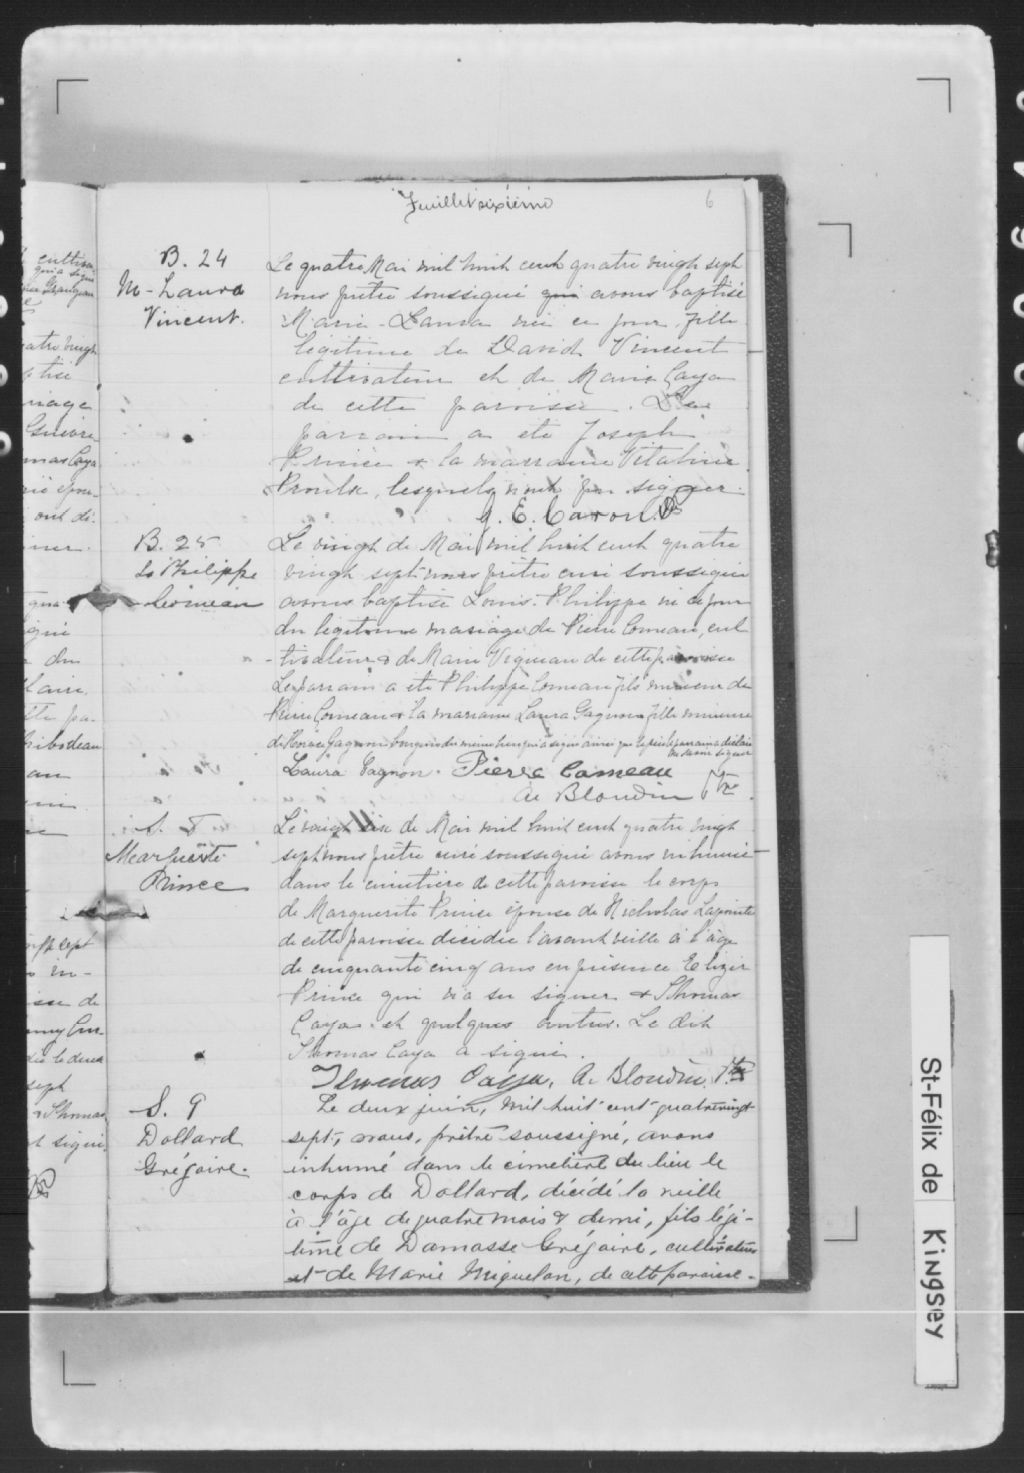 Feuillet sixième
6
B. 24
M-Laura
Vincent.
Le quatre Mai mil huit cent quatre vingh sept
nous prêtre soussigné qui avons baptisé
Marie-Laura née ce jour, fille
légitime de David Vincent
cultivateur et de Marie Caya
de cette paroisse. Le
parrain a été Joseph
Prince & la marraine Vitaline
Proulx, lesquels n'ont pu signer.
J. E. Caron. Ptre
B. 25
Ls Philippe
Comeau
Le vingt de Mai mil huit cent quatre
vingh sept nous prêtre curé soussigné
avons baptisé Louis-Philippe né ce jour
du légitime mariage de Pierre Comeau, cul
-tivateur & de Marie Vigneau de cette paroisse
Le parrain a été Philippe Comeau fils mineur de
Pierre Comeau & la marraine Laura Gagnon fille mineure
de Horace Gagnon bourgeois du même lieu qui a signé ainsi que le père le parrain a déclaré
ne savoir signer
Laura Gagnon. Pierre Comeau
A. Blondin Ptre
S. 8
Marguerite
Prince
Le vingt six de Mai mil huit cent quatre vingh
sept nous prêtre curé soussigné avons inhumé
dans le cimetière de cette paroisse le corps
de Marguerite Prince épouse de Nicholas Lapointe
de cette paroisse décédée l'avant veille à l'âge
de cinquante cinq ans en présence Elizir
Prince qui n'a su signer & Thomas
Caya et quelques autres. Le dit
Thomas Caya a signé.
Thomas Caya, A. Blondin, Ptre
S. 9
Dollard
Grégoire.
Le deux juin, mil huit cent quatrevingt
sept, nous, prêtre soussigné, avons
inhumé dans le cimetière du lieu le
corps de Dollard, décédé la veille
à l'âge de quatre mois & demi, fils légi-
time de Damasse Grégoire, cultivateur
et de Marie Miquelon, de cette paroisse.
St-Félix de Kingsey